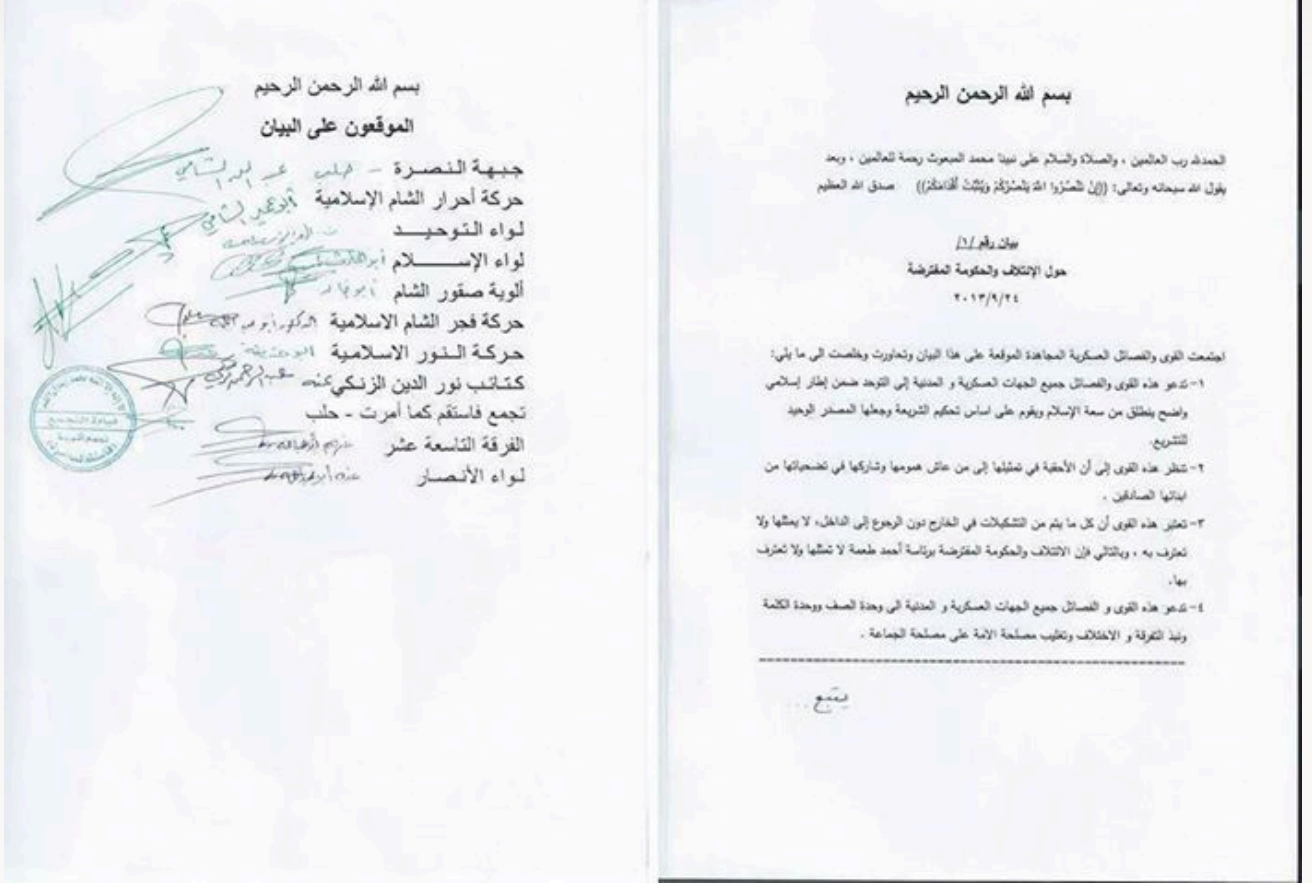 بسم الله الرحمن الرحيم
الحمدلله رب العالمين ، والصلاة والسلام على نبينا محمد المبعوث رحمة للعالمين ، وبعد
يقول الله سبحانه وتعالى: ((إِنْ تَنْصُرُوا اللهَ يَنْصُرْكُمْ وَيُثَبِّتْ أَقْدَامَكُمْ)) صدق الله العظيم
بيان رقم /١/
حول الإئتلاف والحكومة المفترضة
٢٠١٣/٩/٢٤
اجتمعت القوى والفصائل العسكرية المجاهدة الموقعة على هذا البيان وتحاورت وخلصت الى ما يلي:
١- تدعو هذه القوى والفصائل جميع الجهات العسكرية و المدنية إلى التوحد ضمن إطار إسلامي
واضح ينطلق من سعة الإسلام ويقوم على اساس تحكيم الشريعة وجعلها المصدر الوحيد
للتشريع.
٢- تنظر هذه القوى إلى أن الأحقية في تمثيلها إلى من عاش همومها وشاركها في تضحياتها من
ابنائها الصادقين .
٣- تعتبر هذه القوى أن كل ما يتم من التشكيلات في الخارج دون الرجوع إلى الداخل، لا يمثلها ولا
تعترف به ، وبالتالي فإن الائتلاف والحكومة المفترضة برئاسة أحمد طعمة لا تمثلها ولا تعترف
بها.
٤- تدعو هذه القوى و الفصائل جميع الجهات العسكرية و المدنية الى وحدة الصف ووحدة الكلمة
ونبذ التفرقة و الاختلاف وتغليب مصلحة الامة على مصلحة الجماعة .
يتبع ...
بسم الله الرحمن الرحيم
الموقعون على البيان
جبهة النصرة - حلب عبد الله الشامي
حركة أحرار الشام الإسلامية
لواء التوحيد
لواء الإسلام
ألوية صقور الشام
حركة فجر الشام الاسلامية
حركة النور الاسلامية
كتائب نور الدين الزنكي
تجمع فاستقم كما أمرت - حلب
الفرقة التاسعة عشر
لواء الأنصار